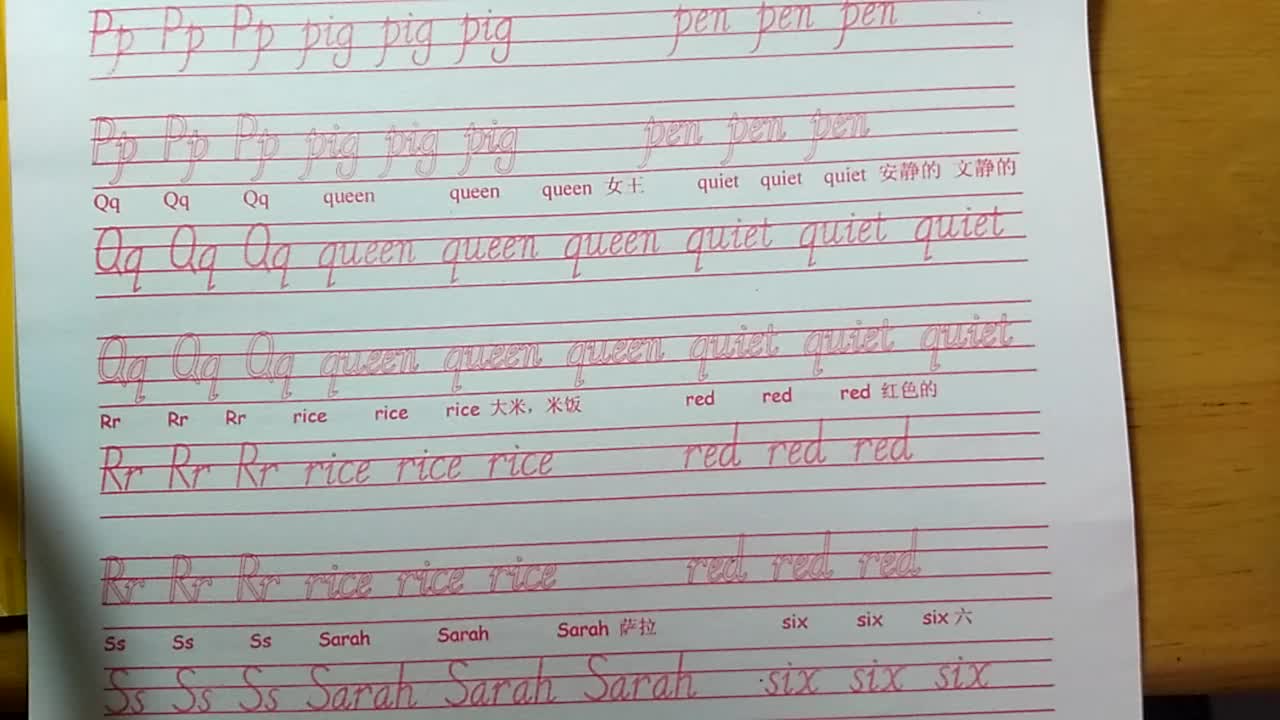 Pp Pp Pp pig pig pig pen pen pen
Pp Pp Pp pig pig pig pen pen pen
Qq Qq Qq queen queen queen 女王 quiet quiet quiet 安静的 文静的
Qq Qq Qq queen queen queen quiet quiet quiet
Qq Qq Qq queen queen queen quiet quiet quiet
Rr Rr Rr rice rice rice 大米，米饭 red red red 红色的
Rr Rr Rr rice rice rice red red red
Rr Rr Rr rice rice rice red red red
Ss Ss Ss Sarah Sarah Sarah 萨拉 six six six 六
Ss Ss Ss Sarah Sarah Sarah six six six